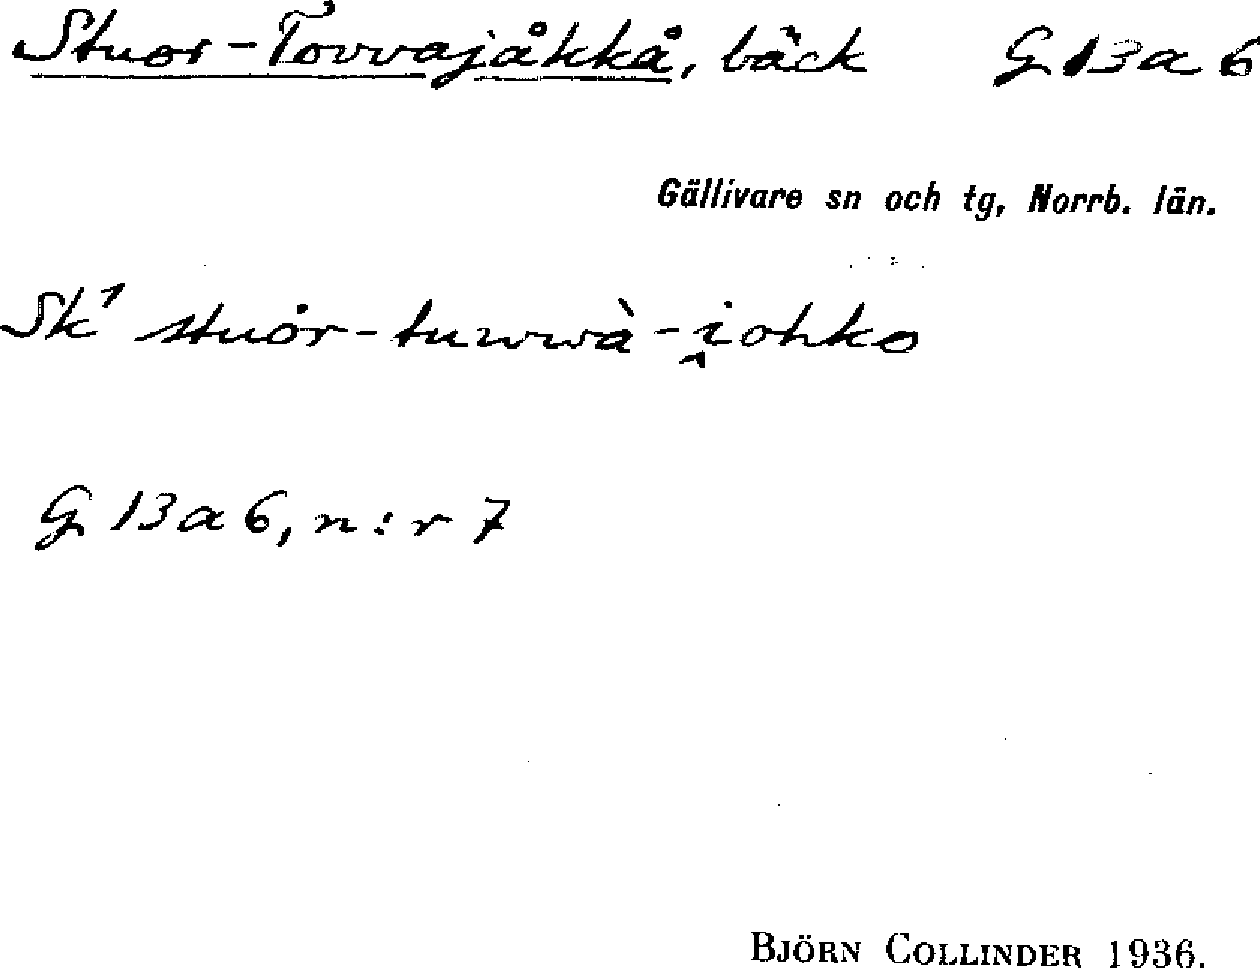 Stuor-Tovvajåkkå, bäck G 13 a 6
Gällivare sn och tg, Norrb. län.
Sk¹ stuȯr-tuwwà-i̭ohko
G 13 a 6, n:r 7
BJÖRN COLLINDER 1936.